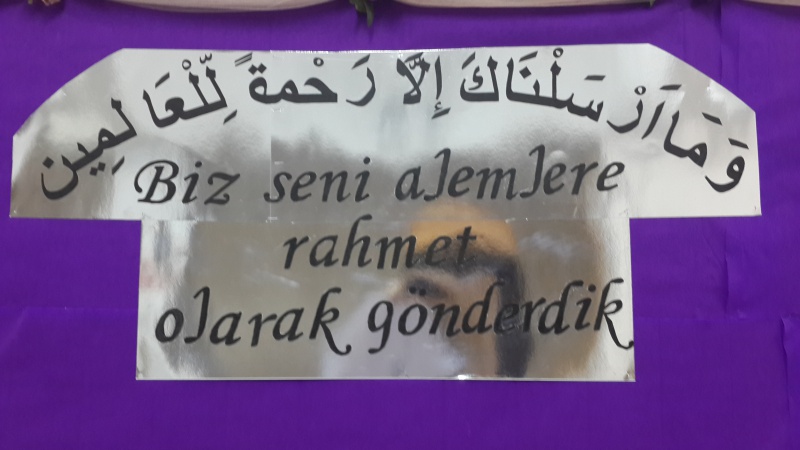 وَمَا اَرْسَلْنَاكَ اِلَّا رَحْمةً لِلْعَالَمِين
Biz seni alemlere
rahmet
olarak gönderdik